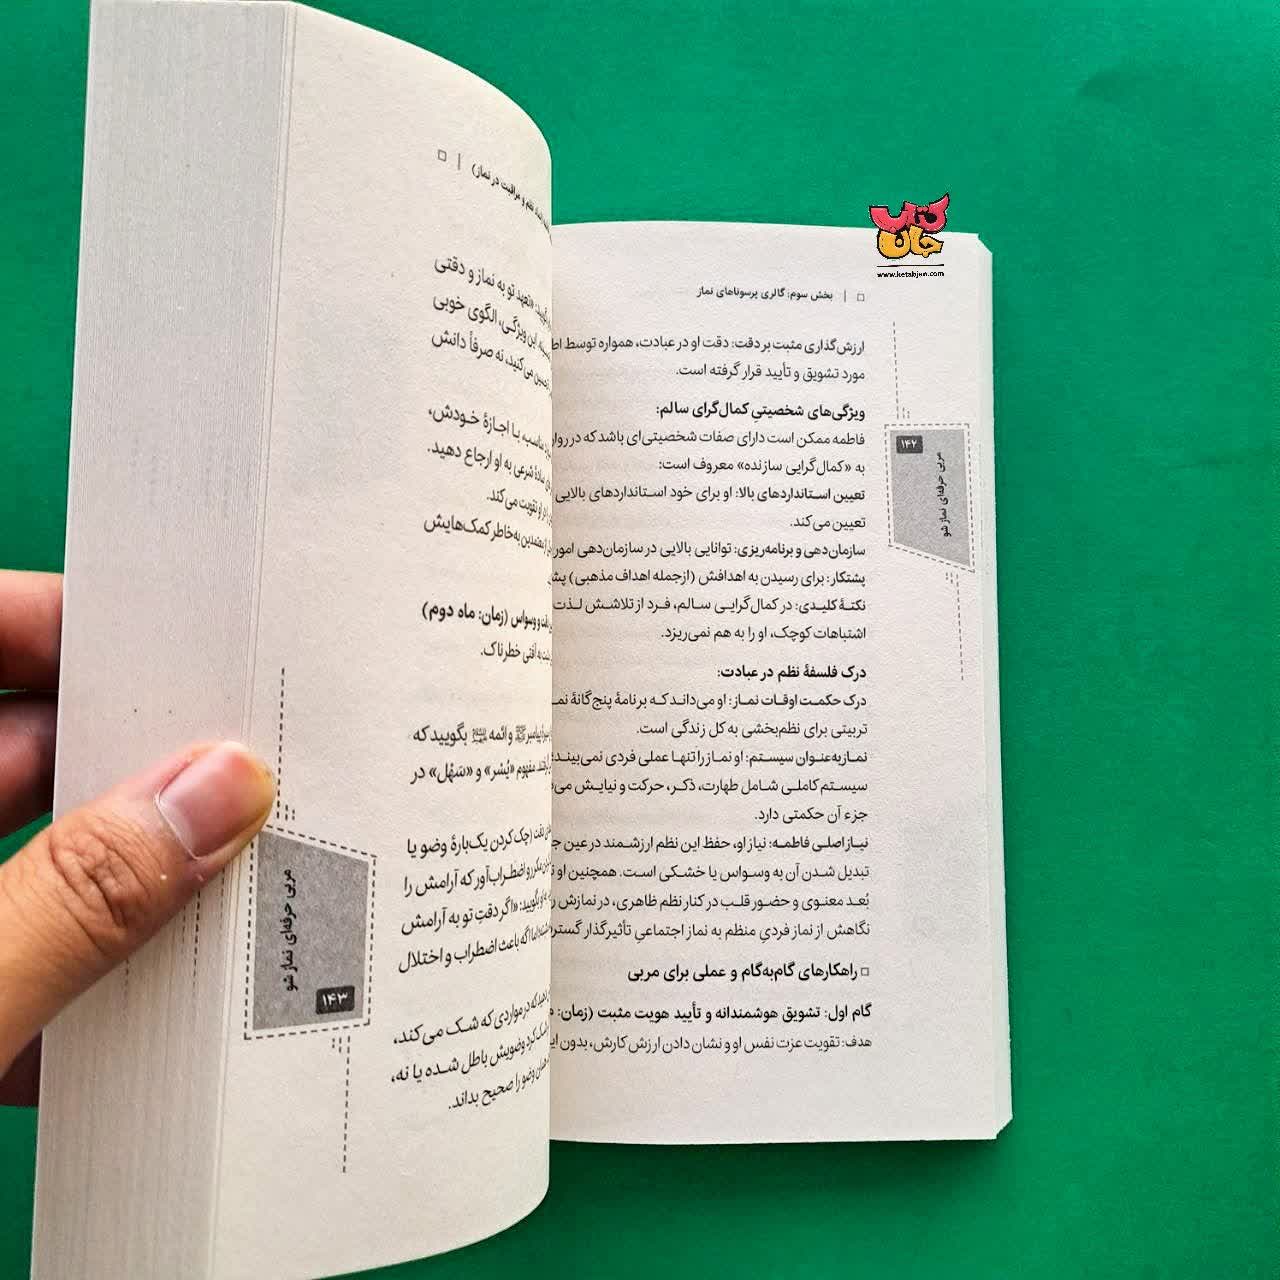 کتاب جان
www.ketabjan.com
بخش سوم: گالری پرسوناهای نماز
ارزش‌گذاری مثبت بر دقت: دقت او در عبادت، همواره توسط
مورد تشویق و تأیید قرار گرفته است.
ویژگی‌های شخصیتیِ کمال‌گرای سالم:
فاطمه ممکن است دارای صفات شخصیتی‌ای باشد که در
به «کمال‌گرایی سازنده» معروف است:
تعیین استانداردهای بالا: او برای خود استانداردهای بالایی
تعیین می‌کند.
سازمان‌دهی و برنامه‌ریزی: توانایی بالایی در سازمان‌دهی امور
پشتکار: برای رسیدن به اهدافش (ازجمله اهداف مذهبی)
نکتهٔ کلیدی: در کمال‌گرایی سالم، فرد از تلاشش لذت
اشتباهات کوچک، او را به هم نمی‌ریزد.
درک فلسفهٔ نظم در عبادت:
درک حکمت اوقات نماز: او می‌داند که برنامهٔ پنج‌گانهٔ
تربیتی برای نظم‌بخشی به کل زندگی است.
نماز به‌عنوان سیستم: او نماز را تنها عملی فردی نمی‌بیند؛
سیستم کاملی شامل طهارت، ذکر، حرکت و نیایش
جزء آن حکمتی دارد.
نیاز اصلی فاطمه: نیاز او، حفظ این نظم ارزشمند در عین
تبدیل شدن آن به وسواس یا خشکی است. همچنین او
بُعد معنوی و حضور قلب در کنار نظم ظاهری، در نمازش
نگاهش از نماز فردیِ منظم به نماز اجتماعیِ تأثیرگذار
راهکارهای گام‌به‌گام و عملی برای مربی
گام اول: تشویق هوشمندانه و تأیید هویت مثبت (زمان:
هدف: تقویت عزت نفس او و نشان دادن ارزش کارش، بدون
۱۴۲
مربی حرفه‌ای نماز شو
نظم و مراقبت در نماز)
بگویید: «تعهد تو به نماز و دقتی
این ویژگی، الگوی خوبی
تحسین می‌کنید، نه صرفاً دانش
مناسب، با اجازهٔ خودش،
سادهٔ شرعی به او ارجاع دهید.
را در او تقویت می‌کند.
به‌خاطر کمک‌هایش
دقت و وسواس (زمان: ماه دوم)
به آفتی خطرناک.
پیامبر ﷺ و ائمه بگویید که
مفهوم «یُسْر» و «سَهْل» در
دقت (چک کردن یک‌بارهٔ وضو یا
مکرر و اضطراب‌آور که آرامش را
بگویید: «اگر دقتِ تو به آرامش
اما اگه باعث اضطراب و اختلال
که در مواردی که شک می‌کند،
شک کرد وضویش باطل شده یا نه،
همان وضو را صحیح بداند.
مربی حرفه‌ای نماز شو
۱۴۳